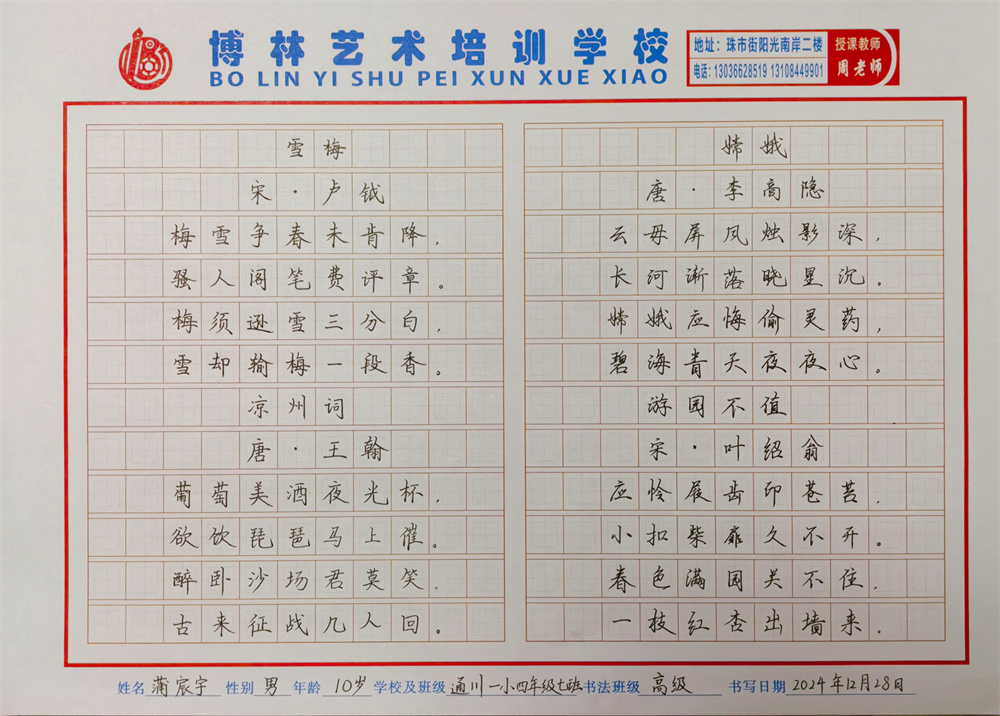 博林艺术培训学校
BO LIN YI SHU PEI XUN XUE XIAO
地址：珠市街阳光南岸二楼
电话：13036628519 13108449901
授课教师
周老师
雪梅
宋·卢钺
梅雪争春未肯降，
骚人阁笔费评章。
梅须逊雪三分白，
雪却输梅一段香。
凉州词
唐·王翰
葡萄美酒夜光杯，
欲饮琵琶马上催。
醉卧沙场君莫笑.
古来征战几人回。
嫦娥
唐·李商隐
云母屏风烛影深，
长河渐落晓星沉。
嫦娥应悔偷灵药，
碧海青天夜夜心。
游园不值
宋·叶绍翁
应怜屐齿印苍苔.
小扣柴扉久不开。
春色满园关不住.
一枝红杏出墙来.
姓名 蒲宸宇 性别 男 年龄 10岁 学校及班级 通川一小四年级七班 书法班级 高级 书写日期 2024年12月28日